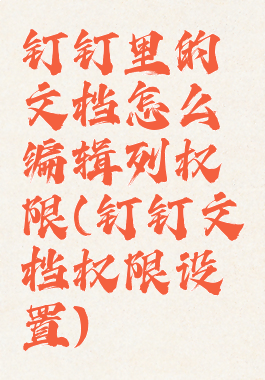 钉钉里的
文档怎么
编辑列权
限(钉钉文
档权限设
置)